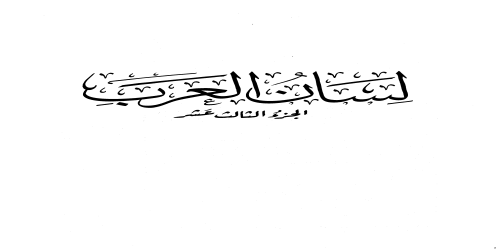 لسان العرب
الجزء الثالث عشر